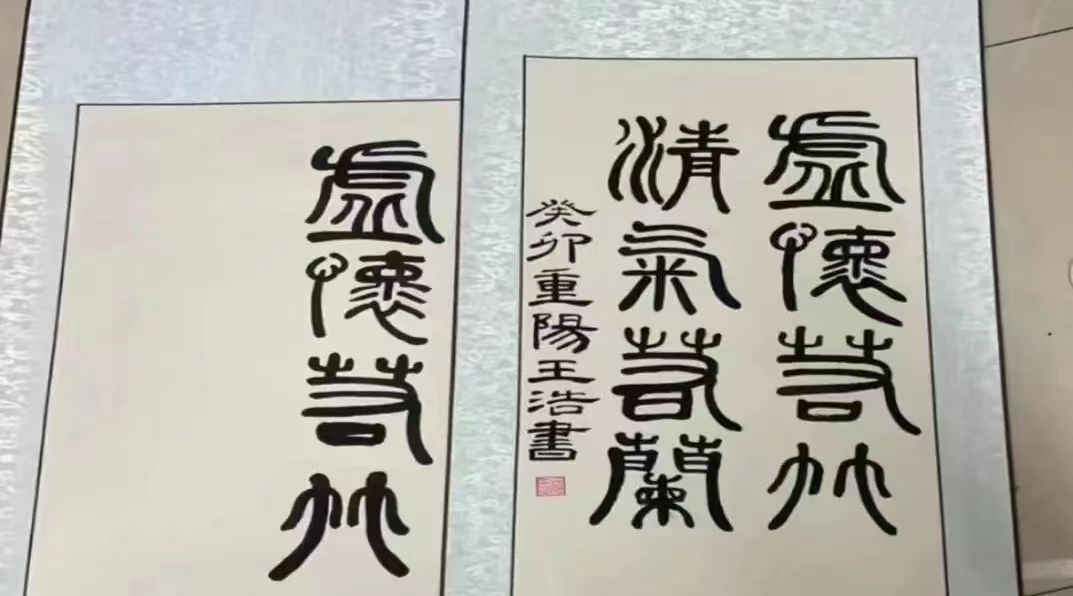 虛懷若竹
清氣若蘭
癸卯重陽王浩書
虛懷若竹